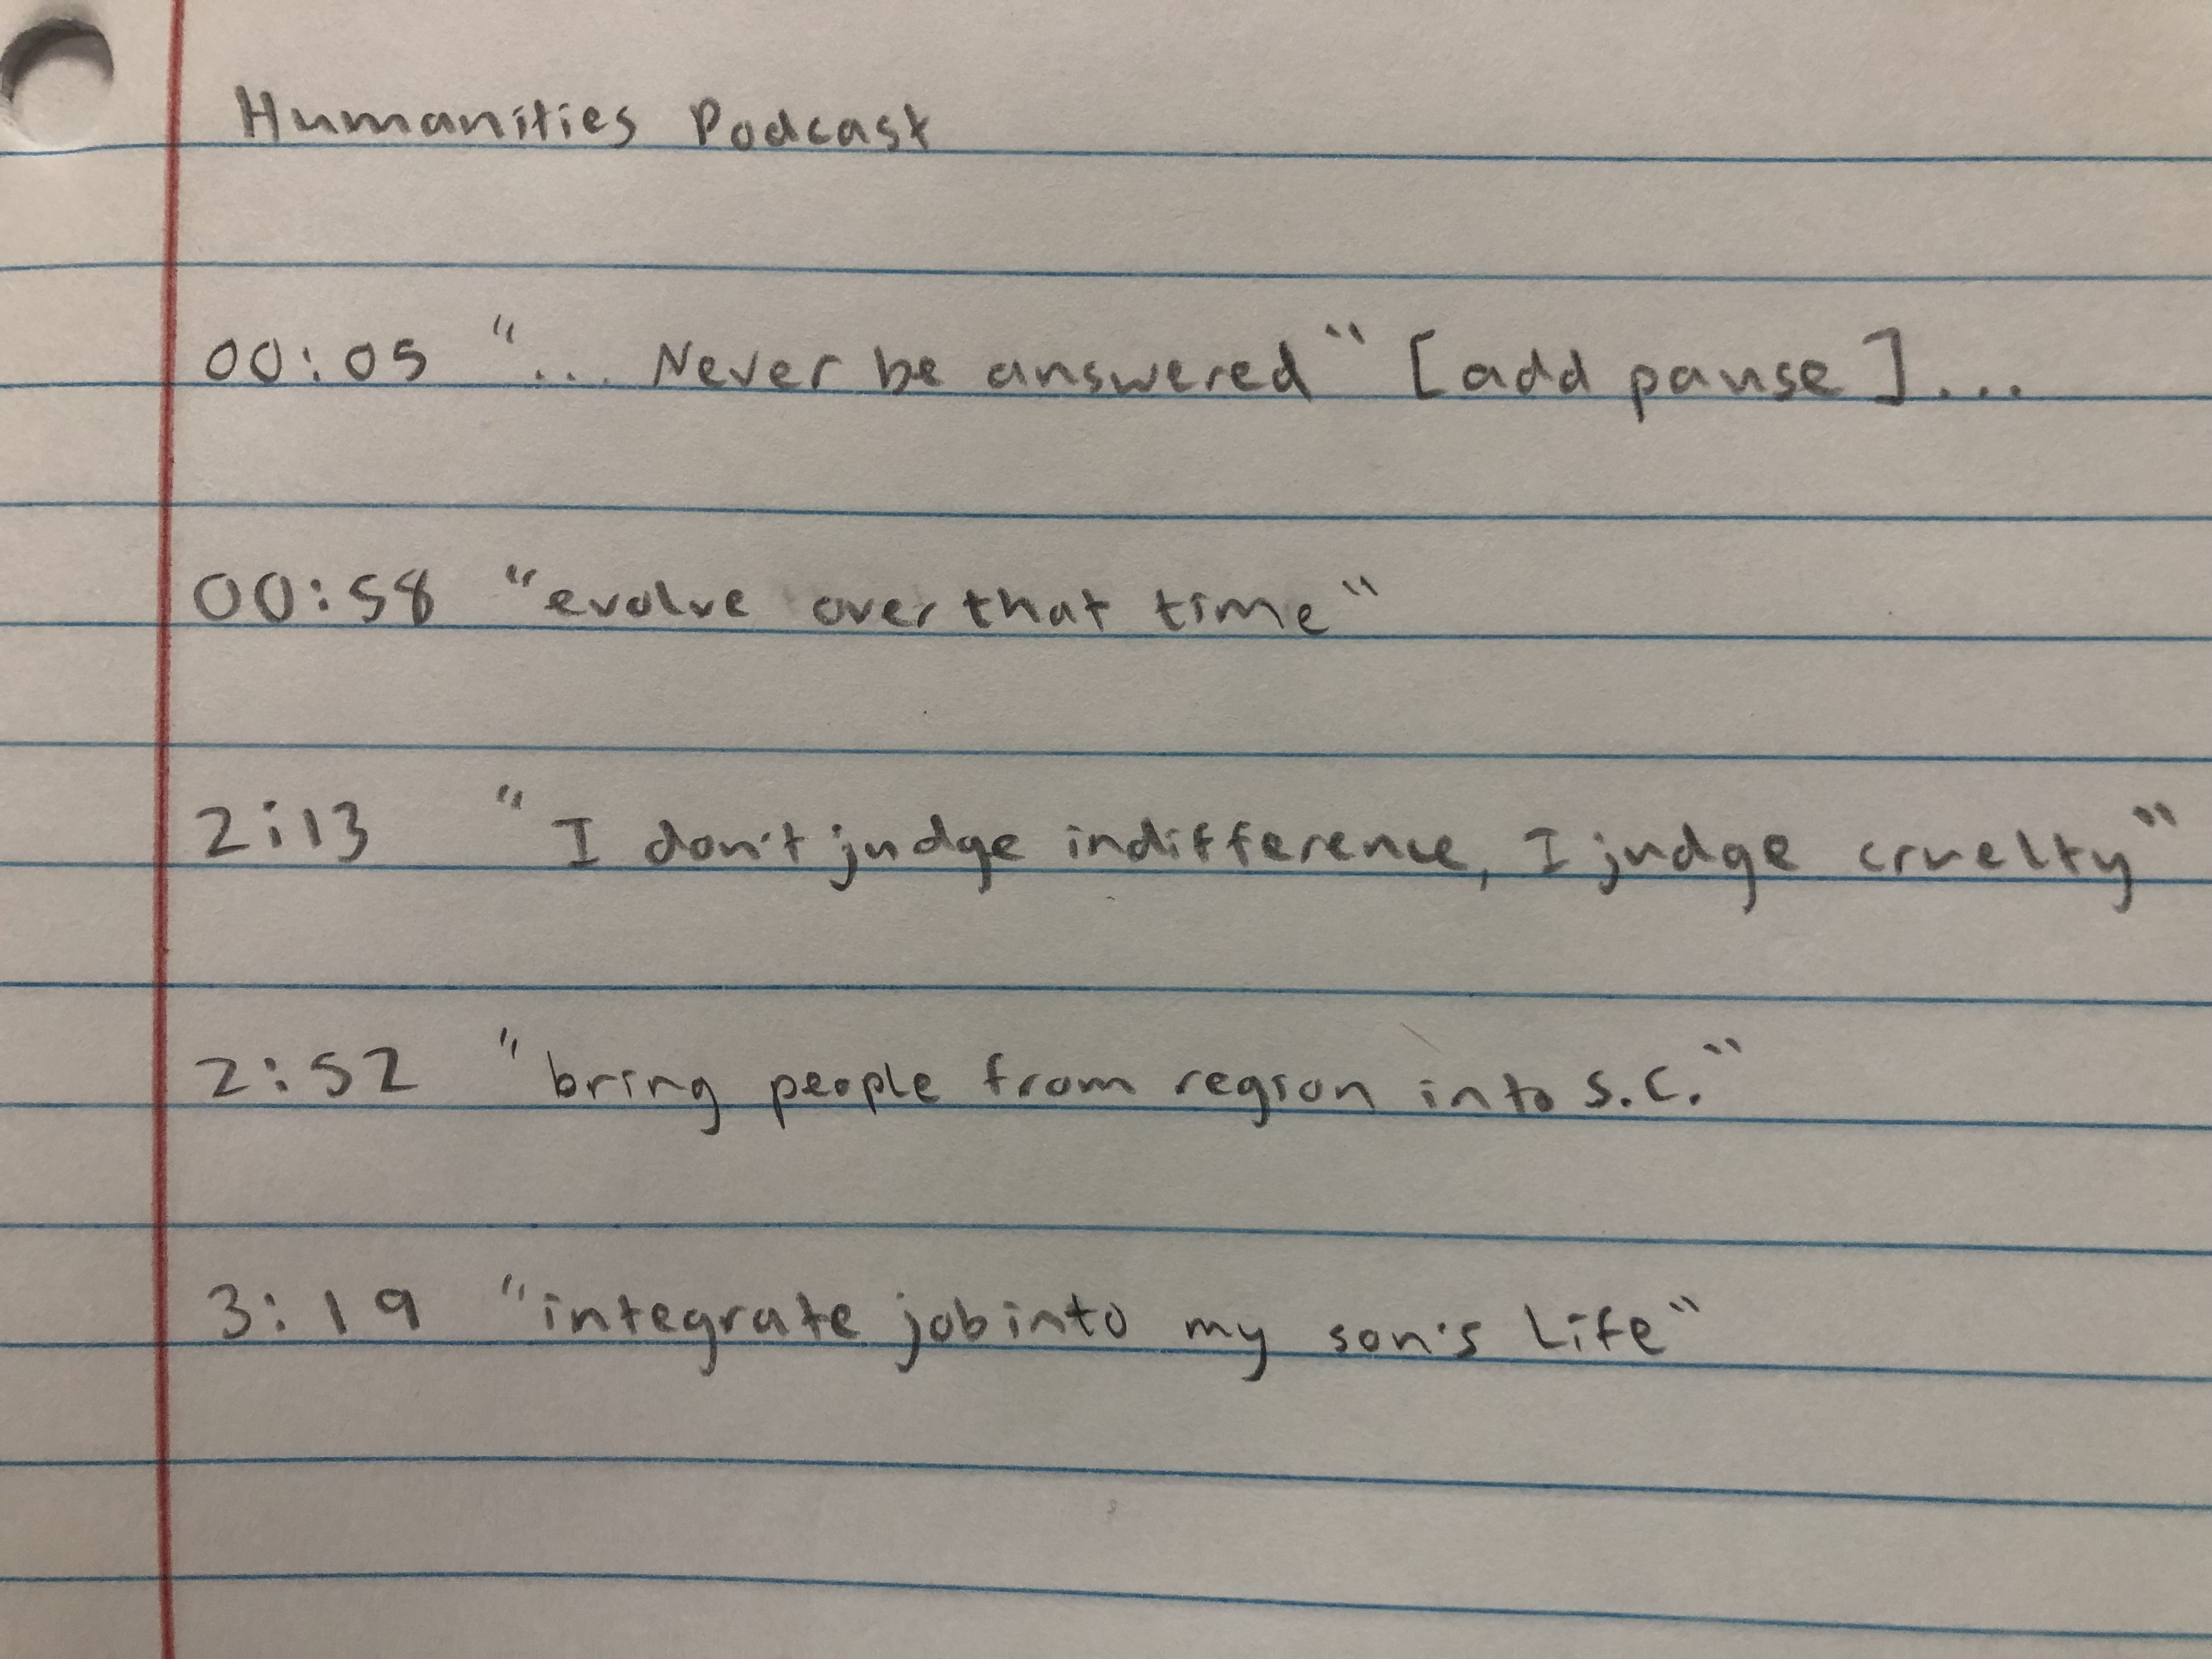 Humanities Podcast
00:05 "... Never be answered" [add pause]...
00:58 "evolve over that time"
2:13 "I don't judge indifference, I judge cruelty"
2:52 "bring people from region into S.C."
3:19 "integrate job into my son's Life"